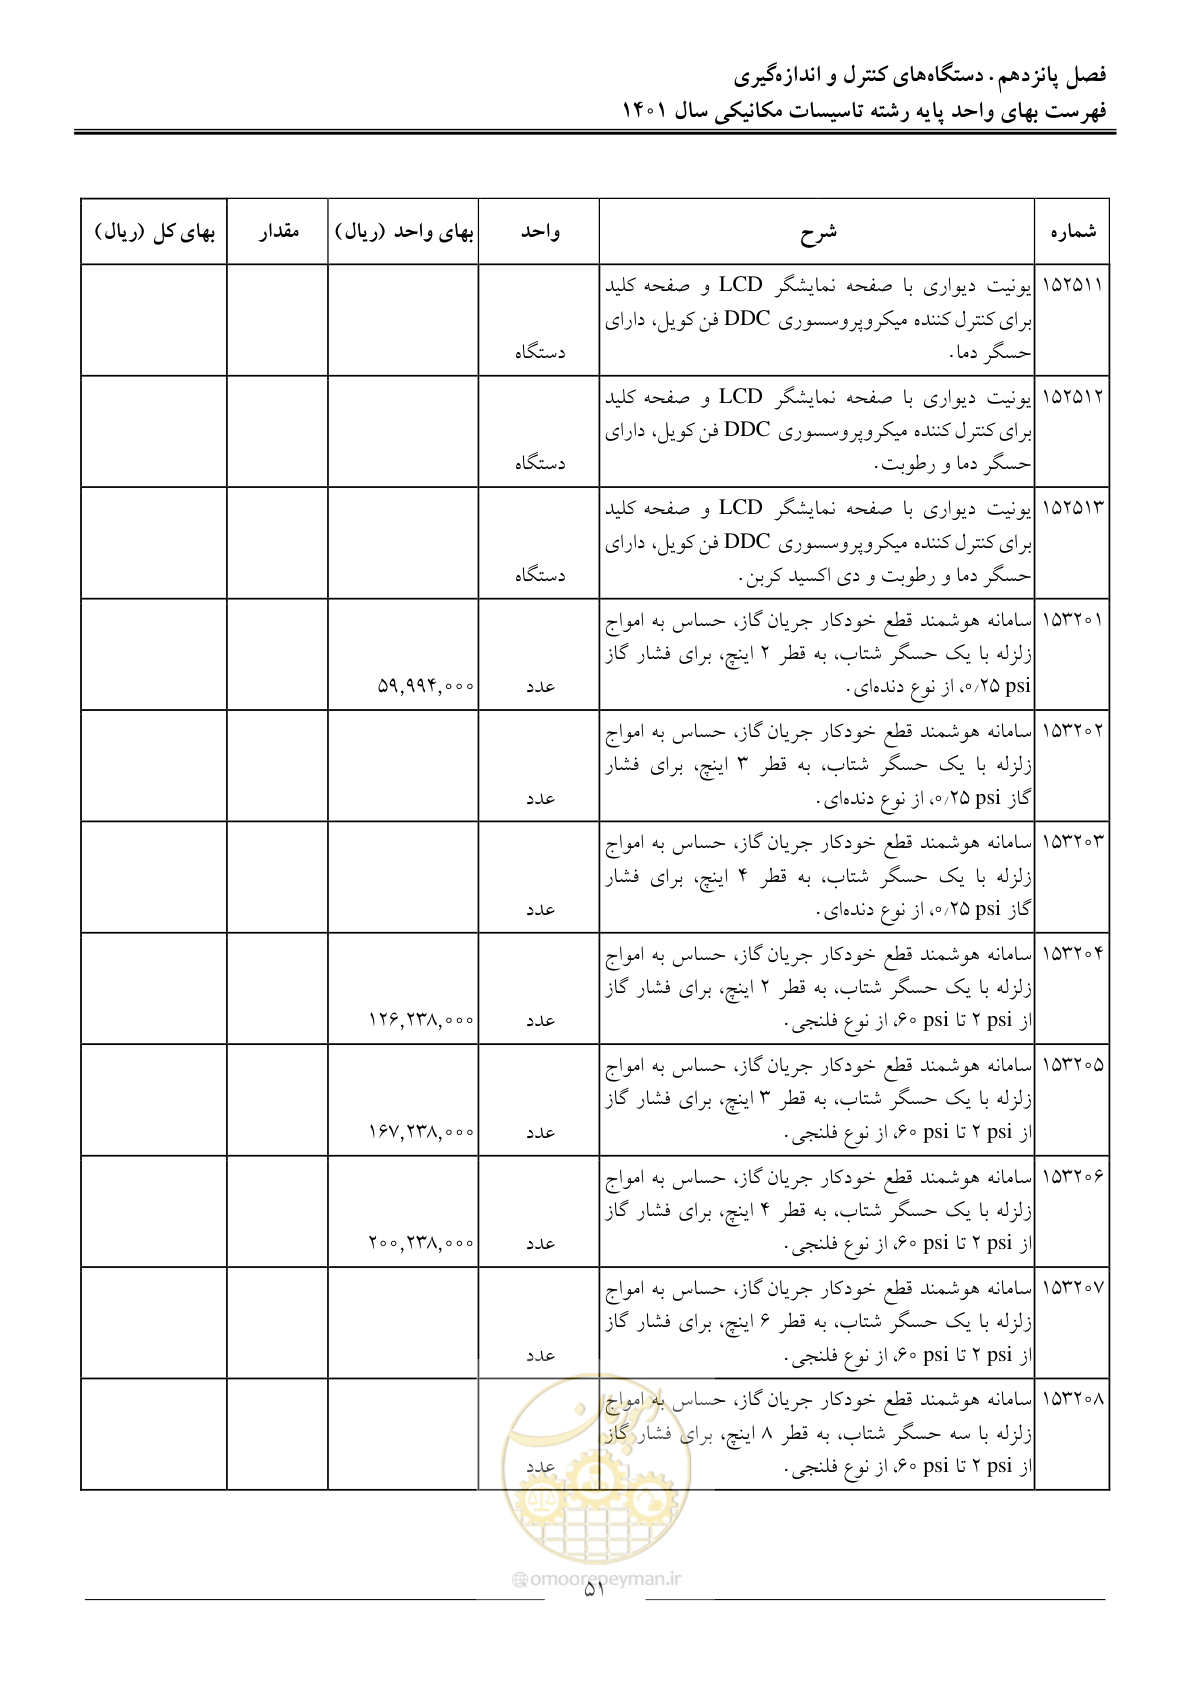 فصل پانزدهم. دستگاه‌های کنترل و اندازه‌گیری
فهرست بهای واحد پایه رشته تاسیسات مکانیکی سال ۱۴۰۱
شماره شرح واحد بهای واحد (ریال) مقدار بهای کل (ریال)
۱۵۲۵۱۱ یونیت دیواری با صفحه نمایشگر LCD و صفحه کلید
برای کنترل کننده میکروپروسسوری DDC فن کویل، دارای
حسگر دما. دستگاه
۱۵۲۵۱۲ یونیت دیواری با صفحه نمایشگر LCD و صفحه کلید
برای کنترل کننده میکروپروسسوری DDC فن کویل، دارای
حسگر دما و رطوبت. دستگاه
۱۵۲۵۱۳ یونیت دیواری با صفحه نمایشگر LCD و صفحه کلید
برای کنترل کننده میکروپروسسوری DDC فن کویل، دارای
حسگر دما و رطوبت و دی اکسید کربن. دستگاه
۱۵۳۲۰۱ سامانه هوشمند قطع خودکار جریان گاز، حساس به امواج
زلزله با یک حسگر شتاب، به قطر ۲ اینچ، برای فشار گاز
۰٫۲۵ psi، از نوع دنده‌ای. عدد ۵۹,۹۹۴,۰۰۰
۱۵۳۲۰۲ سامانه هوشمند قطع خودکار جریان گاز، حساس به امواج
زلزله با یک حسگر شتاب، به قطر ۳ اینچ، برای فشار
گاز ۰٫۲۵ psi، از نوع دنده‌ای. عدد
۱۵۳۲۰۳ سامانه هوشمند قطع خودکار جریان گاز، حساس به امواج
زلزله با یک حسگر شتاب، به قطر ۴ اینچ، برای فشار
گاز ۰٫۲۵ psi، از نوع دنده‌ای. عدد
۱۵۳۲۰۴ سامانه هوشمند قطع خودکار جریان گاز، حساس به امواج
زلزله با یک حسگر شتاب، به قطر ۲ اینچ، برای فشار گاز
از ۲ psi تا ۶۰ psi، از نوع فلنجی. عدد ۱۲۶,۲۳۸,۰۰۰
۱۵۳۲۰۵ سامانه هوشمند قطع خودکار جریان گاز، حساس به امواج
زلزله با یک حسگر شتاب، به قطر ۳ اینچ، برای فشار گاز
از ۲ psi تا ۶۰ psi، از نوع فلنجی. عدد ۱۶۷,۲۳۸,۰۰۰
۱۵۳۲۰۶ سامانه هوشمند قطع خودکار جریان گاز، حساس به امواج
زلزله با یک حسگر شتاب، به قطر ۴ اینچ، برای فشار گاز
از ۲ psi تا ۶۰ psi، از نوع فلنجی. عدد ۲۰۰,۲۳۸,۰۰۰
۱۵۳۲۰۷ سامانه هوشمند قطع خودکار جریان گاز، حساس به امواج
زلزله با یک حسگر شتاب، به قطر ۶ اینچ، برای فشار گاز
از ۲ psi تا ۶۰ psi، از نوع فلنجی. عدد
۱۵۳۲۰۸ سامانه هوشمند قطع خودکار جریان گاز، حساس به امواج
زلزله با سه حسگر شتاب، به قطر ۸ اینچ، برای فشار گاز
از ۲ psi تا ۶۰ psi، از نوع فلنجی. عدد
امور پیمان
omoorepeyman.ir
۵۱